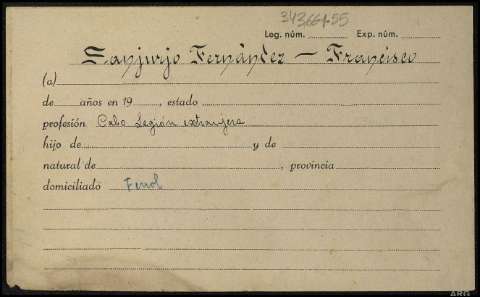 343.664-55
Leg. núm. Exp. núm.
Sanjurjo Fernández — Francisco
(a)
de años en 19 , estado
profesión Cabo Legión extranjera
hijo de y de
natural de , provincia
domiciliado Ferrol
ARG